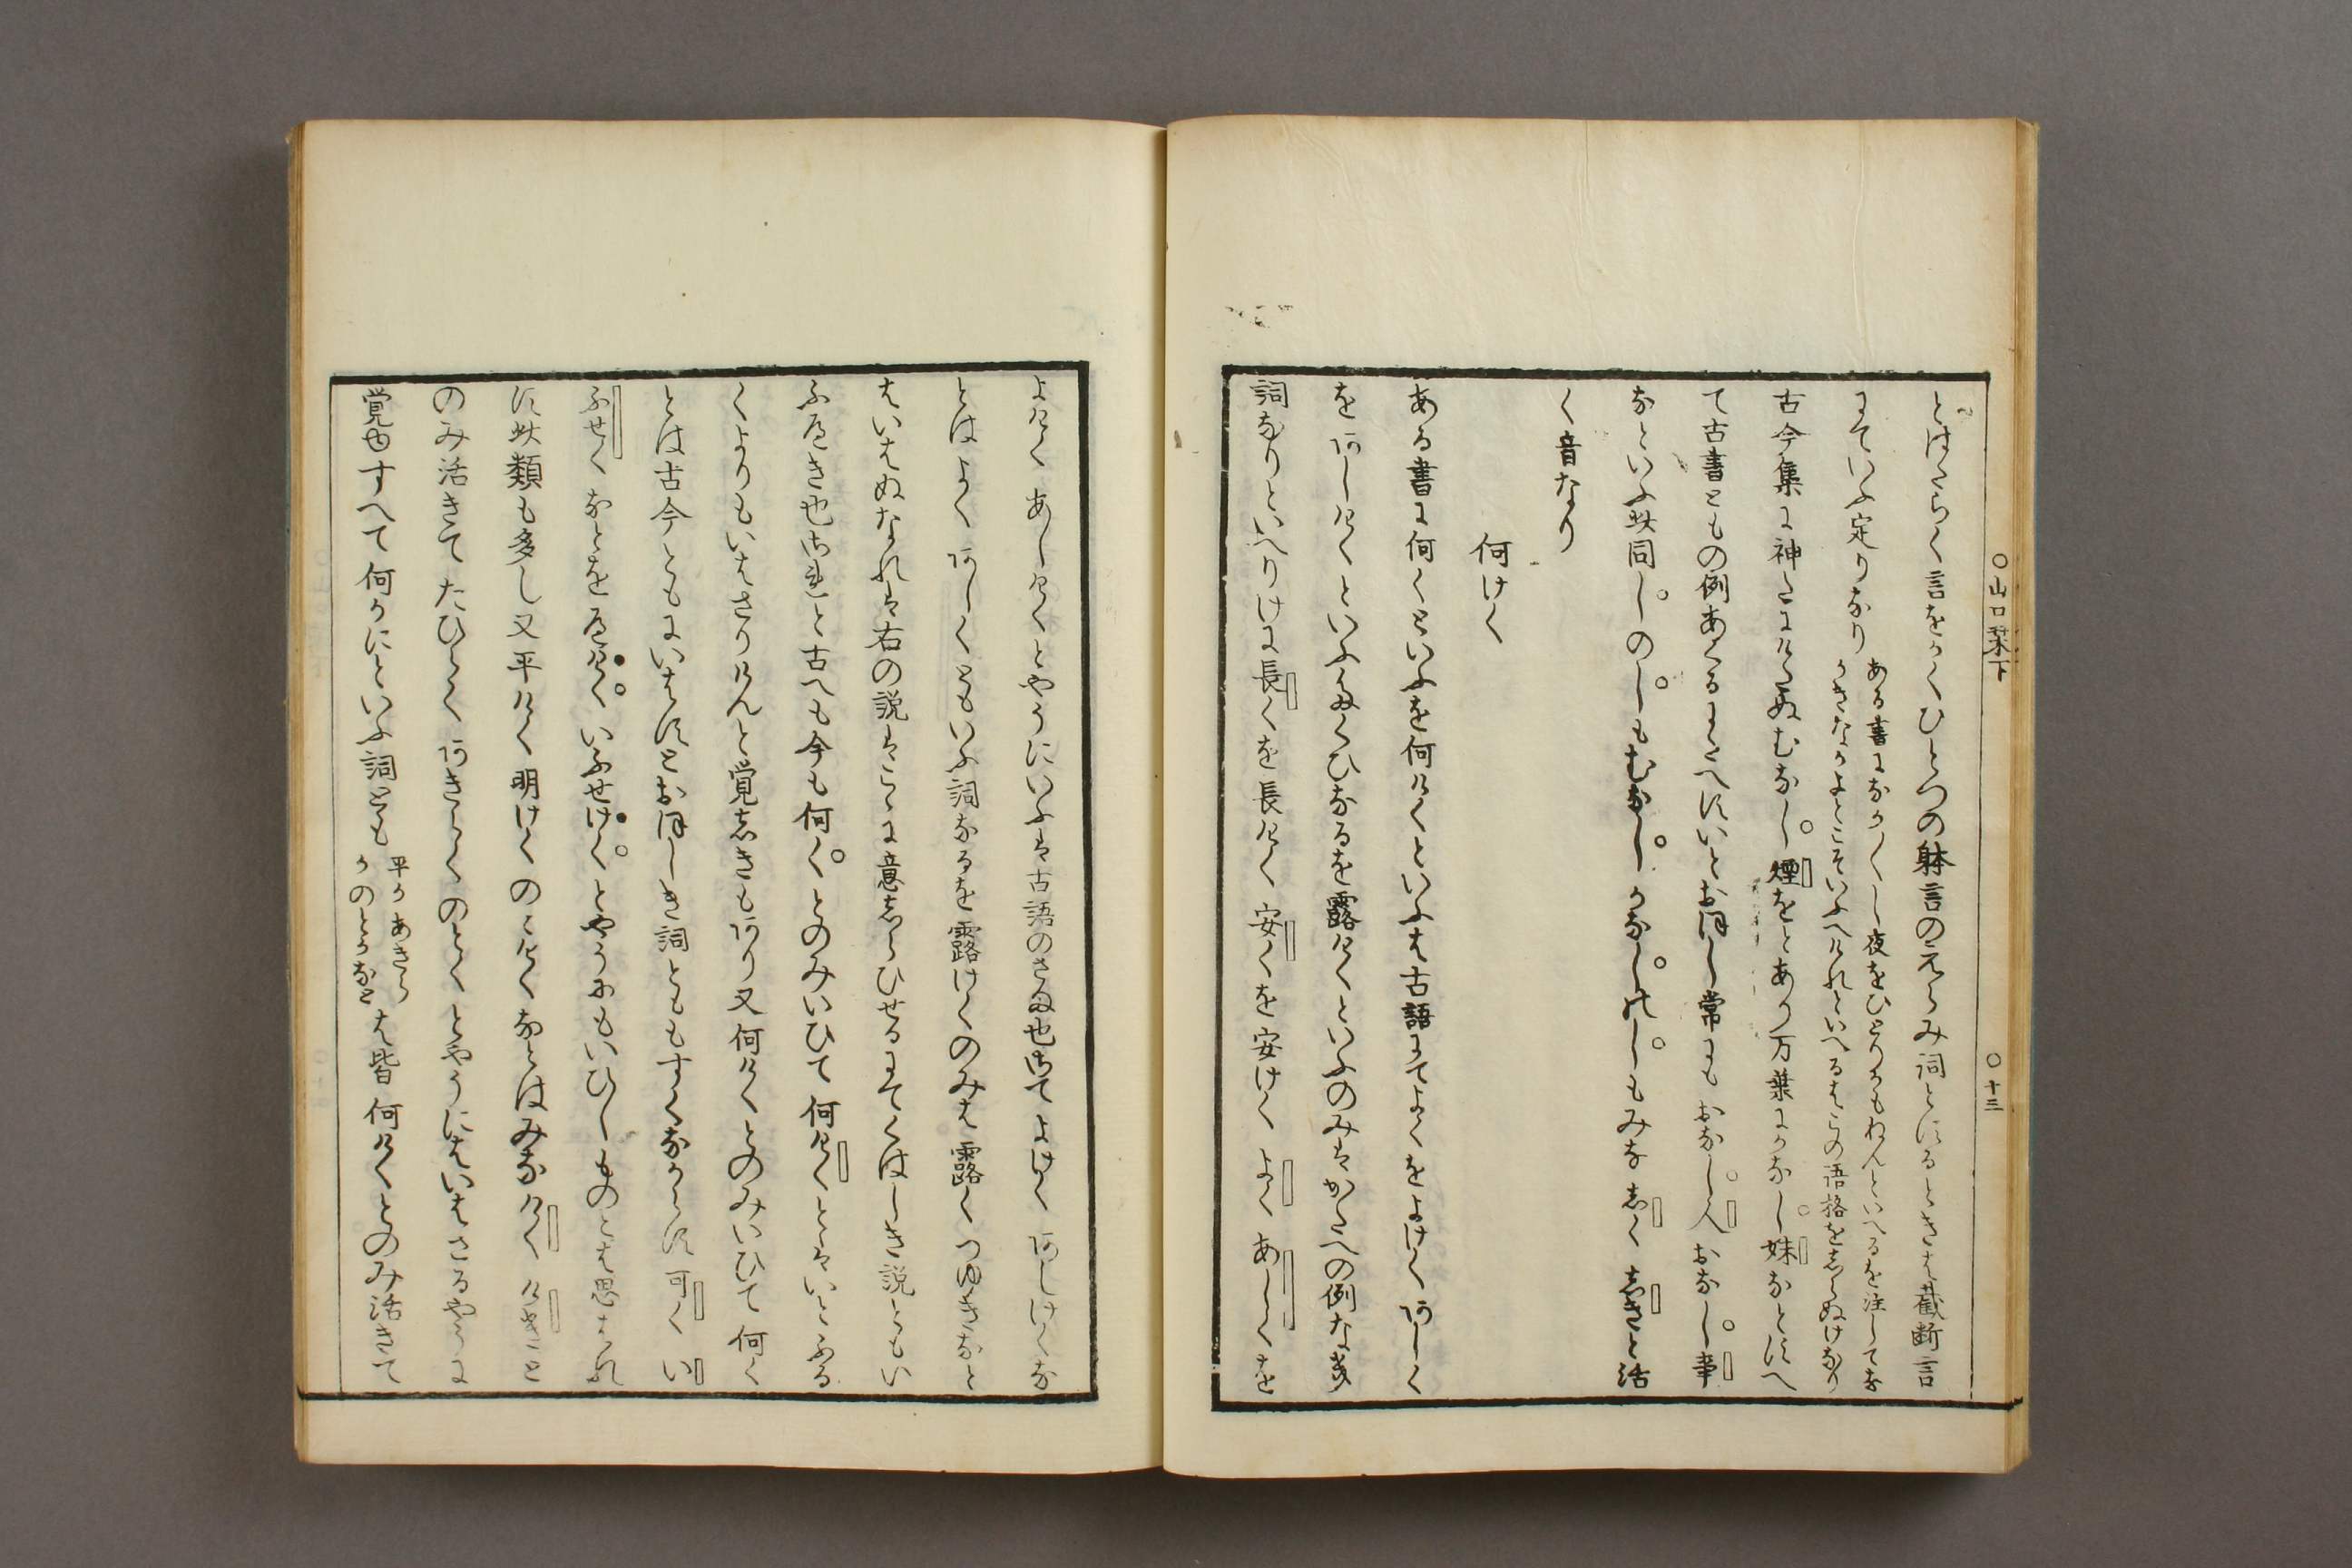 〇山口栞下　〇十三
とはたらく言をかくひとつの躰言のえらみ詞とにるときは截断言
にていふ定りなり
ある書になか〳〵し夜をひとりかもねんといへるを注してな
かきなかよとこそいふへけれといへるはこの語格をしらぬけなり
古今集に神たにけたぬむなし煙をとあり万葉にかなし妹なとすへ
て古書ともの例あくるにたへすいとおほし常にもおなし人おなし事
なといふ此同しのしもむなしかなしのしもみなしくしきと活
く音なり
何けく
ある書に何くといふを何けくといふは古語にてよくをよけくあしく
をあしけくといふたくひなるを露けくといふのみはかたへの例なき
詞なりといへりけに長くを長けく安くを安けくよくあしくを
よけくあしけくとやうにいふは古語のさま也さてよけくあしけくな
とはよくあしくともいふ詞なるを露けくのみは露くつゆきなと
はいはぬなれは右の説はこゝに意しらひせるにてくはしき説ともい
ふへき也されと古へも今も何くとのみいひて何けくとはいとふる
くよりもいはさりけんと覚しきもあり又何けくとのみいひて何く
とは古今ともにいはすとおほしき詞とももすくなからす可くい
ふせくなとをへけくいふせけくとやうにもいひしものとは思はれ
す此類も多し又平けく明けくのとけくなとはみなけくけきと
のみ活きてたひらくあきらくのとくとやうにはいはさるやうに
覚ゆすへて何かにといふ詞とも
平かあきら
かのとかなと
は皆何けくとのみ活きて